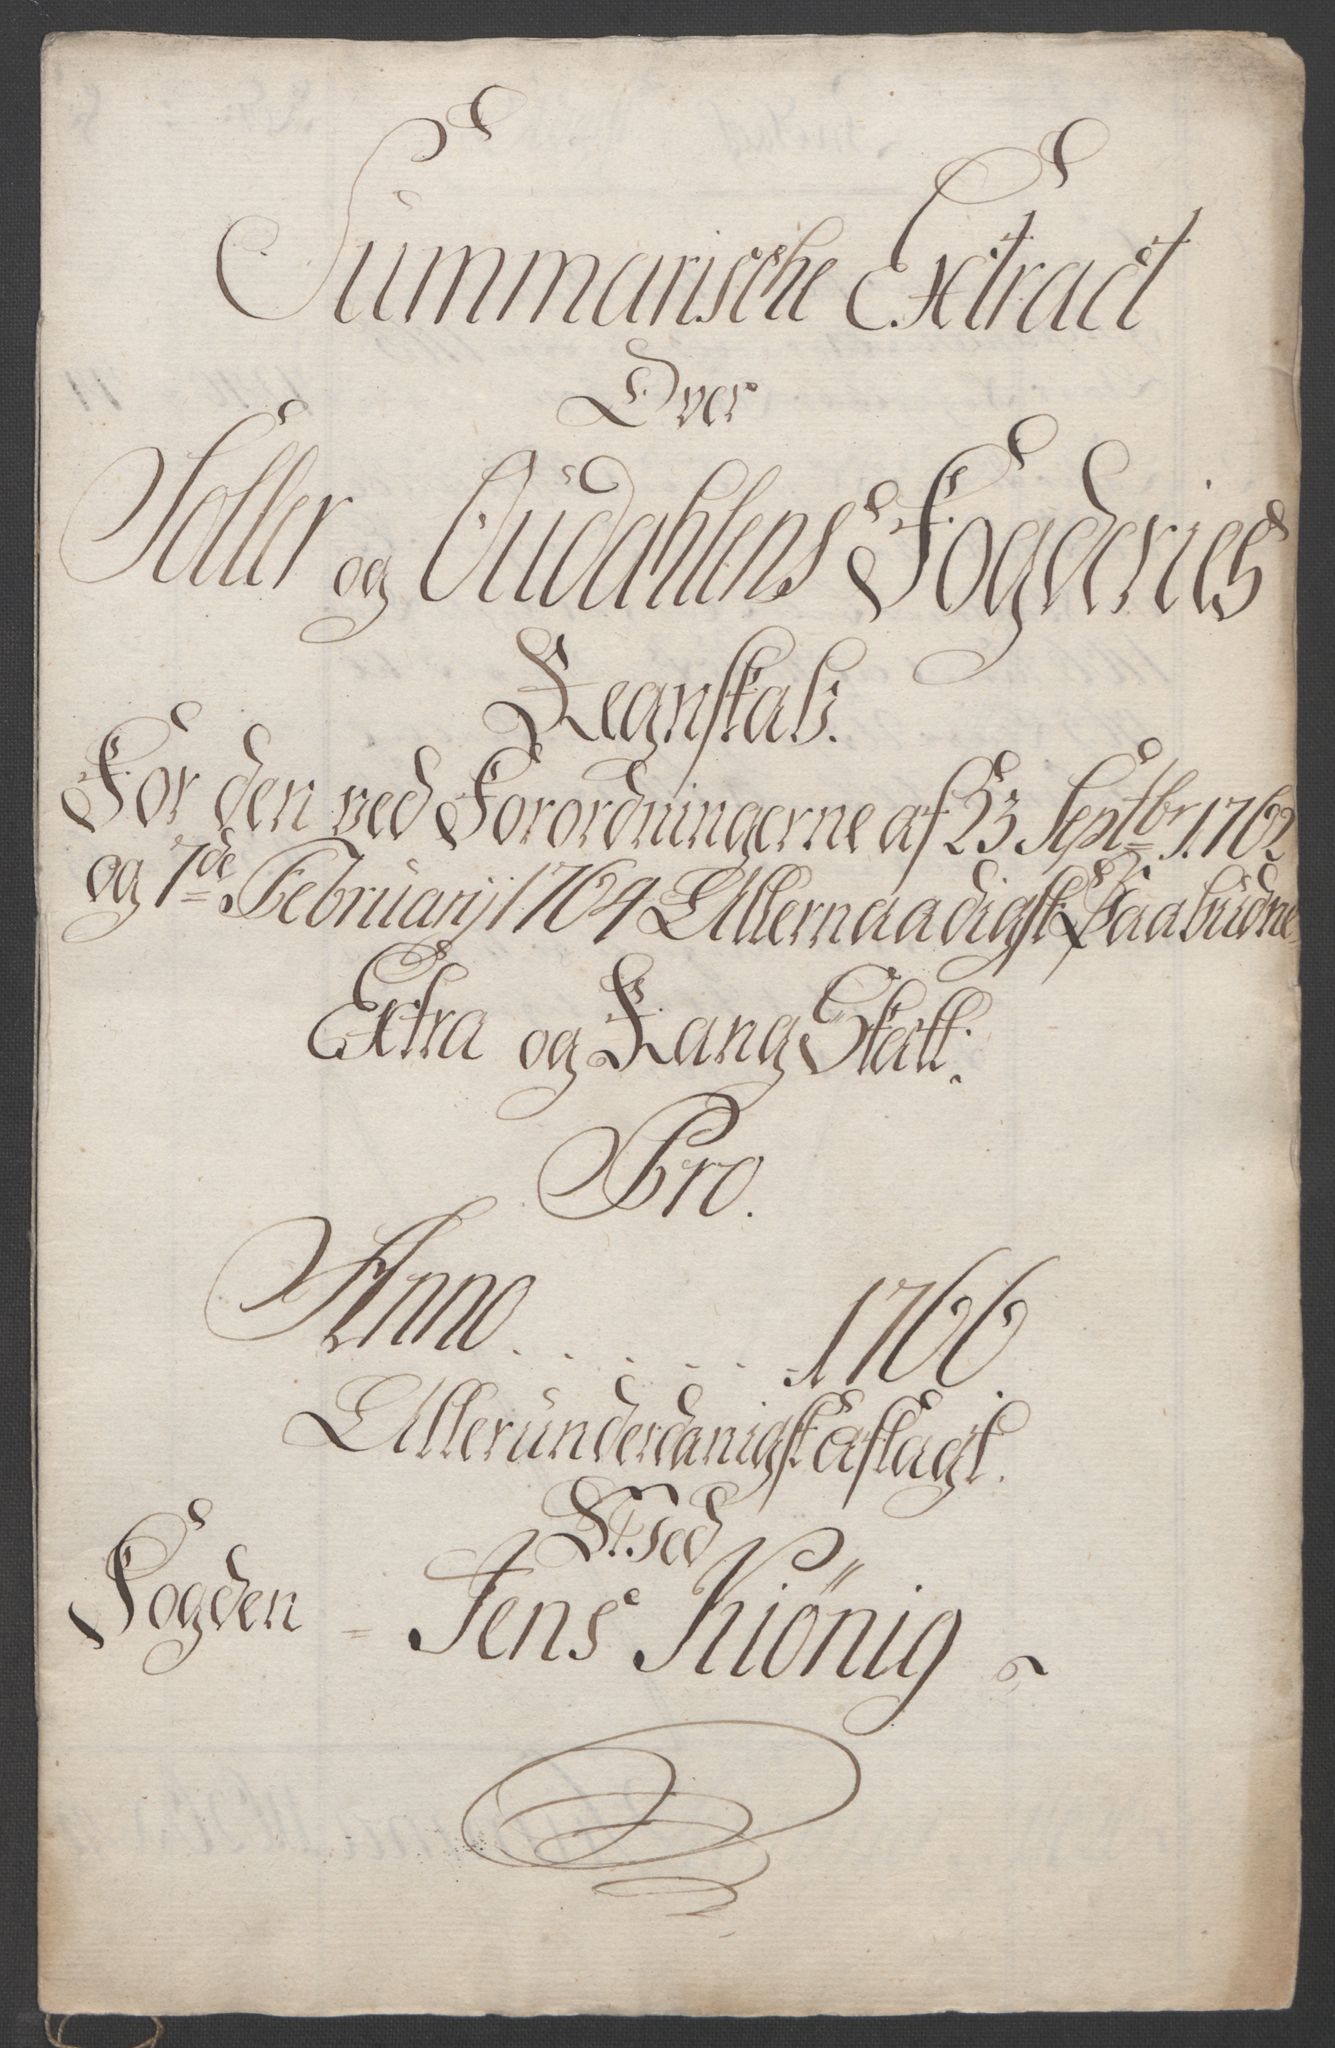 Summarische Extract
Over
Soller og Oüdahlens Fogderies
Regnskab.
For den ved Forordningerne af 23 Septbr. 1762
og 7de Februarij 1764 Allernaadigst Paabüdne
Extra og Rang Skatt.
Pro.
Anno . . . . . . 1766
Alleründerdanigst aflagt.
Ved
Fogden = Jens Kiönig